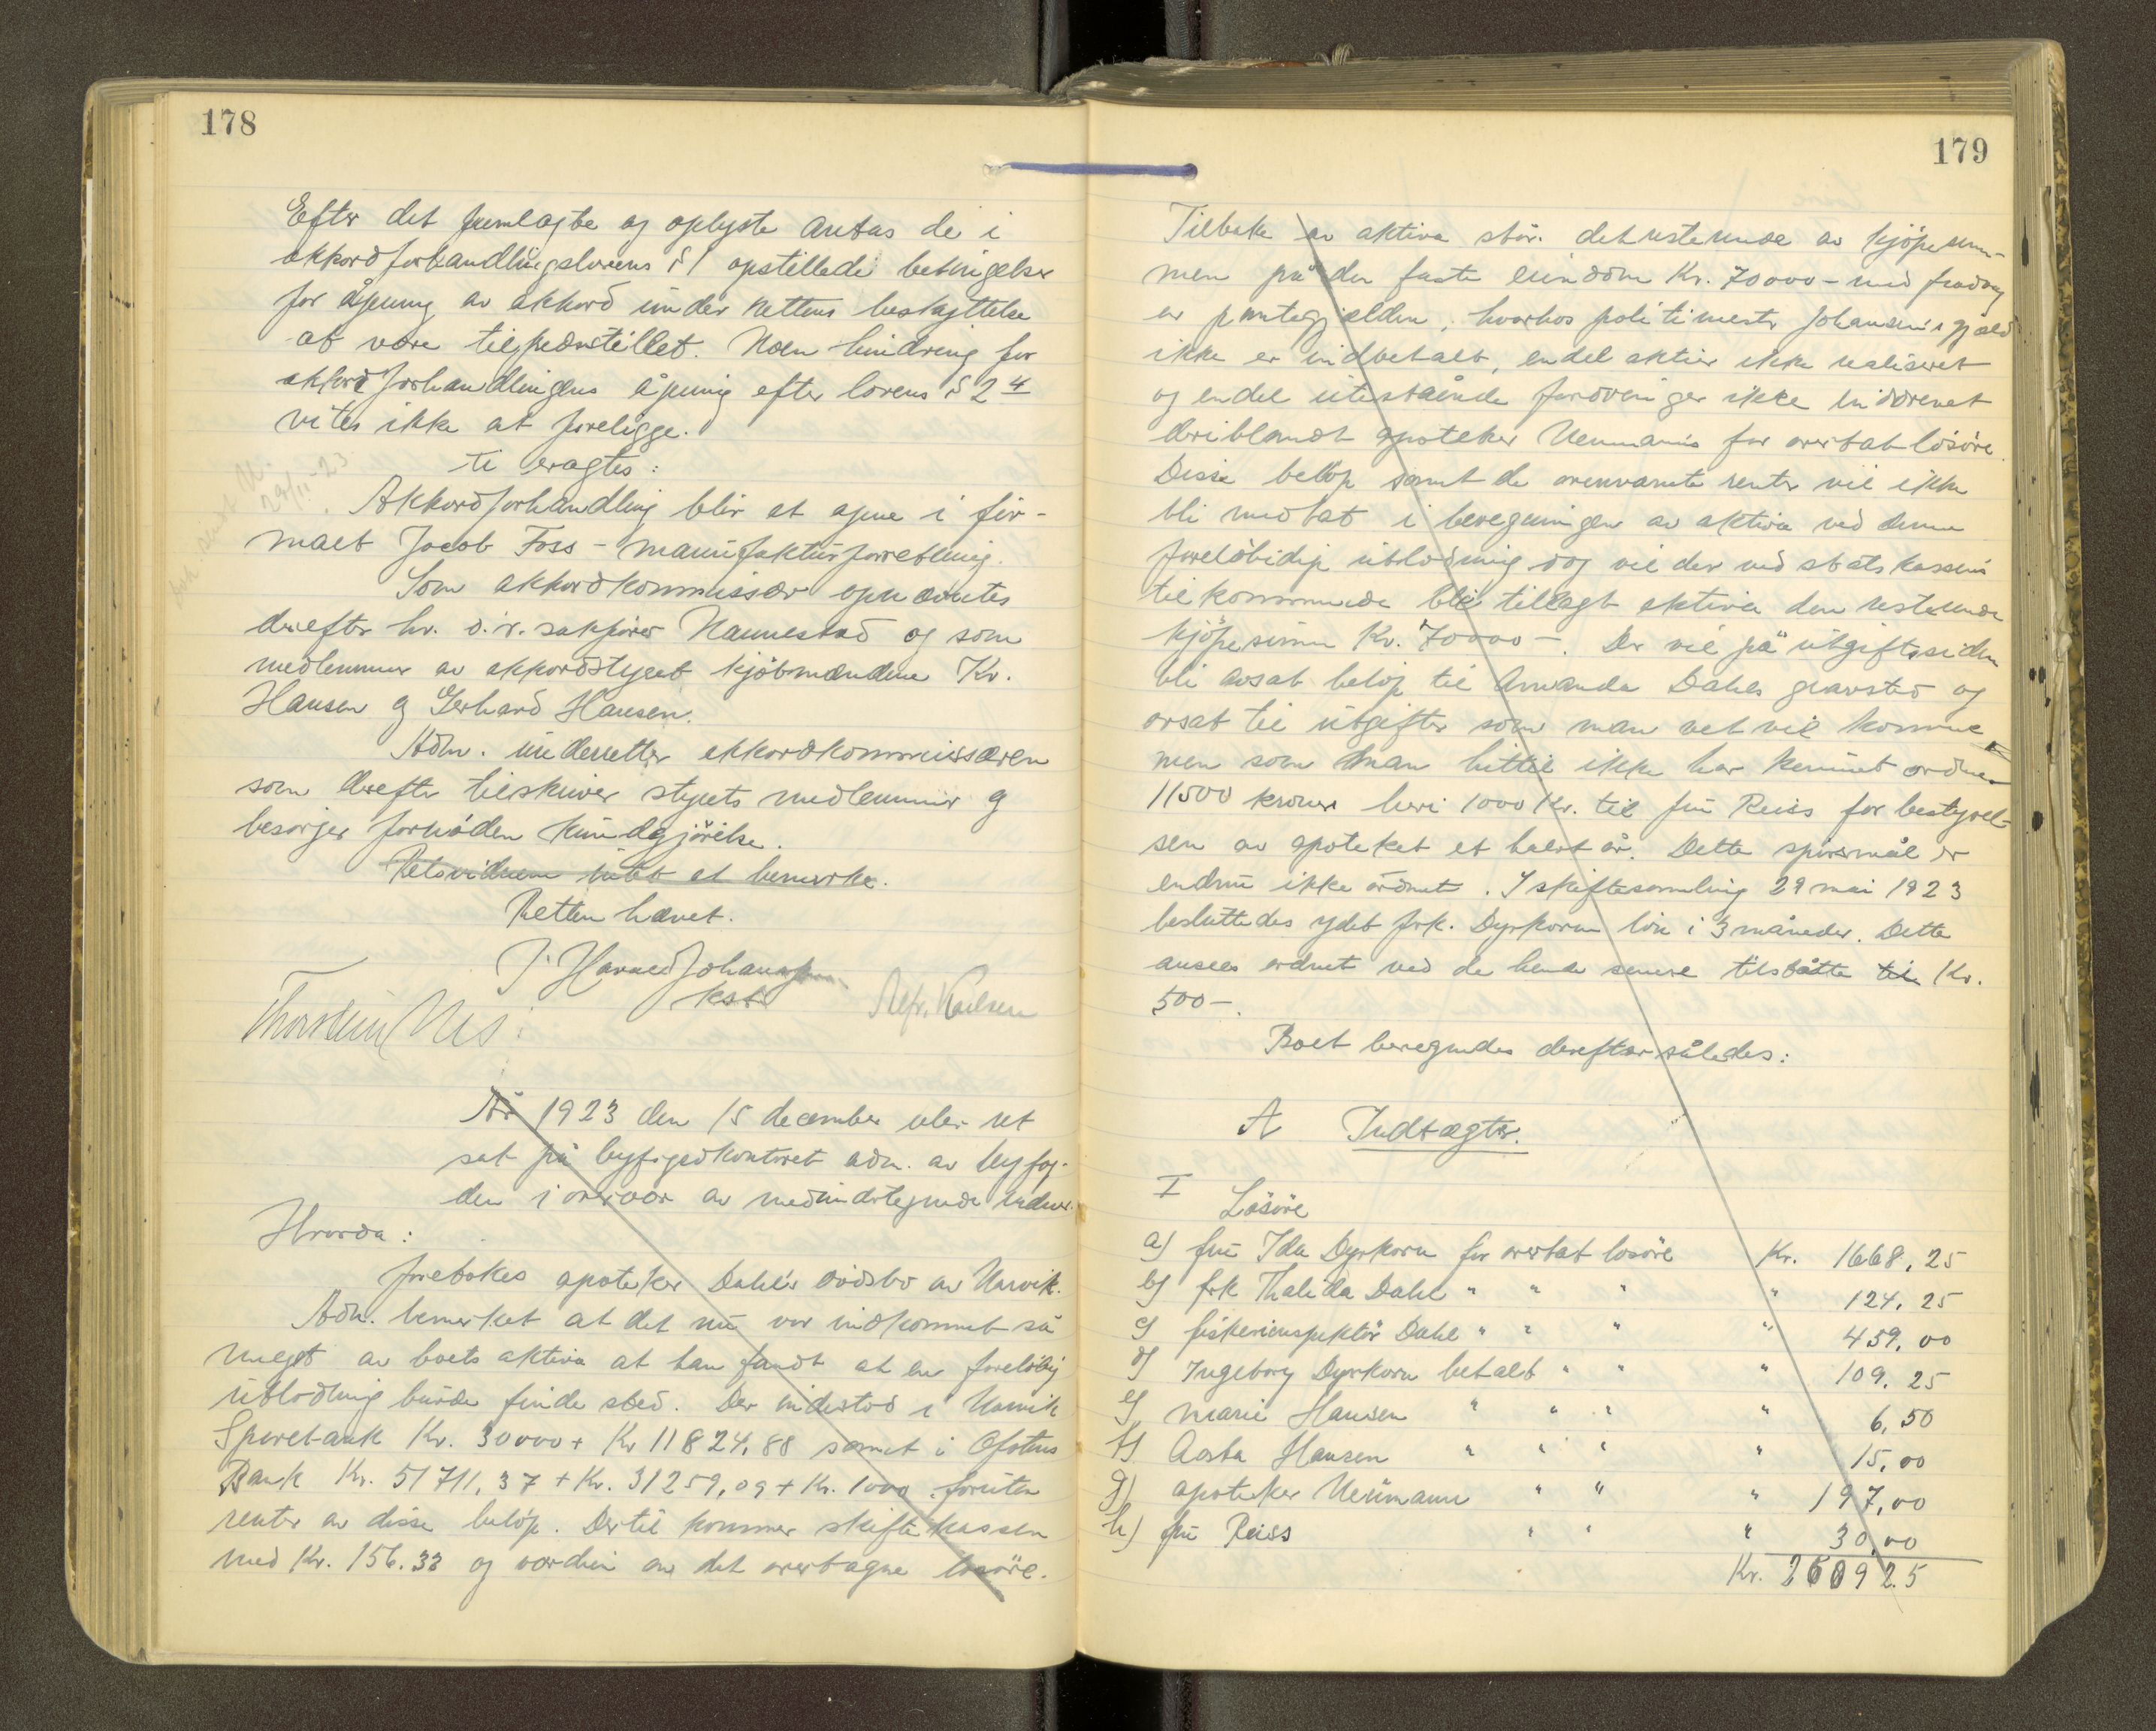 178
Efter det fremlagte og oplyste antas de i
akkordforhandlingslovens § 1 opstillede betingelser
for åpning av akkord under rettens beskyttelse
at være tilfredsstillet. Noen hindring for
akkordforhandlingens åpning efter lovens § 2 4
vites ikke at foreligge.
Ti eragtes:
Akkordforhandling blir at åpne i fir-
maet Jacob Foss - manufakturforretning.
Som akkordkommissær opnævntes
derefter hr. o.r. sakfører Nannestad og som
medlemmer av akkordstyret kjøbmændene Kr.
Hansen og Gerhard Hansen.
Adm. underretter akkordkommissæren
som derefter tilskriver styrets medlemmer og
besørger fornöden kundgjörelse.
Retsvidnene intet at bemerke.
Retten hævet.
J. Havned Johansen
kst
Thorstein Nes
Alfr. Karlsen
29/11 - 23
År 1923 den 15 december blev ret
sat på byfogedkontoret adm. av byfog-
den i overvær av medundertegnede vidner.
Hvorda:
foretokes apoteker Dahls dödsbo av Narvik.
Adm. bemerket at det nu var indkommet så
meget av boets aktiva at han fandt at en foreløbig
utlodning burde finde sted. Der indestod i Narvik
Sparebank Kr. 30000 + Kr 11824.88 samt i Ofotens
Bank Kr. 51711,37 + Kr. 31259,09 + Kr. 1000 foruten
renter av disse beløp. Dertil kommer skiftekassen
med Kr. 156.33 og værdien av det overtagne lösöre.
179
Tilbake av aktiva står det resterende av kjöpesum-
men på den faste eiendom Kr. 70000 - med fradrag
av pantegjælden, hvorhos politimester Johansens gjæld
ikke er indbetalt, endel aktier ikke realiseret
og endel utestående fordringer ikke inddrevet
deriblandt apoteker Neumanns for overtat lösöre.
Disse belöp samt de ovennævnte renter vil ikke
bli medtat i beregningen av aktiva ved denne
foreløbige utlodning dog vil der ved statskassens
tilkommende bli tillagt aktiva den resterende
kjöpesum Kr. 70000 -. Der vil på utgiftssiden
bli avsat belöp til Amanda Dahls gravsted og
avsat til utgifter som man vet vil komme
men som man hittil ikke har kunnet ordne
11500 kroner heri 1000 Kr. til fru Reiss for bestyrel-
sen av apoteket et halvt år. Dette spörsmål er
endnu ikke ordnet. I skiftesamling 29 mai 1923
besluttedes ydet frk. Dyrkorn lön i 3 måneder. Dette
ansees ordnet ved de hende senere tilståtte til Kr.
500 -.
Boet beregnedes derefter således:
A Indtægter.
I
Lösöre
a) fru Ida Dyrkorn for overtat lösöre Kr. 1668.25
b) frk Thalida Dahl " " " " 124.25
c) fiskeriinspektör Dahl " " " " 459.00
d) Ingeborg Dyrkorn betalt " " " 109.25
e) Marie Hansen " " " " 6,50
f) Aasta Hansen " " " " 15,00
g) apoteker Neumann " " " 197,00
h) fru Reiss " " " 30,00
Kr. 260925